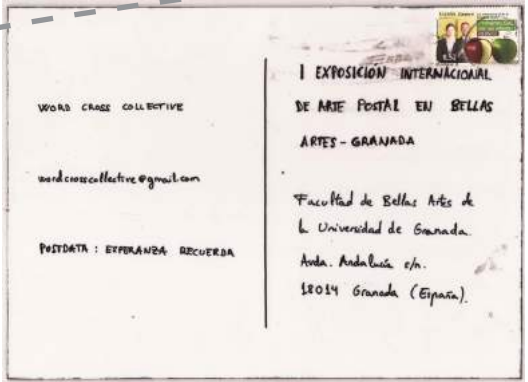 WORD CROSS COLLECTIVE
wordcrosscollective@gmail.com
POSTDATA : ESPERANZA RECUERDA
I EXPOSICIÓN INTERNACIONAL
DE ARTE POSTAL EN BELLAS
ARTES - GRANADA
Facultad de Bellas Artes de
la Universidad de Granada.
Avda. Andalucía s/n.
18014 Granada (España).